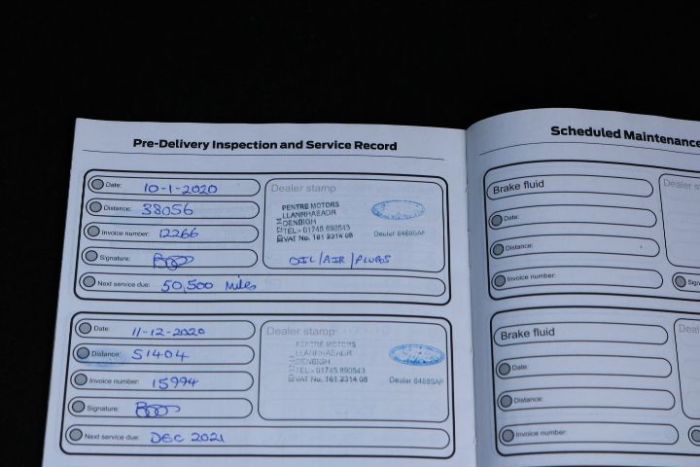 Pre-Delivery Inspection and Service Record
Date: 10-1-2020
Distance: 38056
Invoice number: 12266
Signature:
Next service due: 50,500 miles
Dealer stamp
PENTRE MOTORS
LLANRHAEADR
DENBIGH
TEL:- 01745 890543
VAT No. 161 2314 08
Dealer 6468SAP
OIL/AIR/PLUGS
Date: 11-12-2020
Distance: 51404
Invoice number: 15994
Signature:
Next service due: DEC 2021
Dealer stamp:
PENTRE MOTORS
LLANRHAEADR
DENBIGH
TEL:- 01745 890543
VAT No. 161 2314 08
Dealer 6468SAP
Scheduled Maintenance
Brake fluid
Date:
Distance:
Invoice number:
Dealer
Brake fluid
Date:
Distance:
Invoice number: